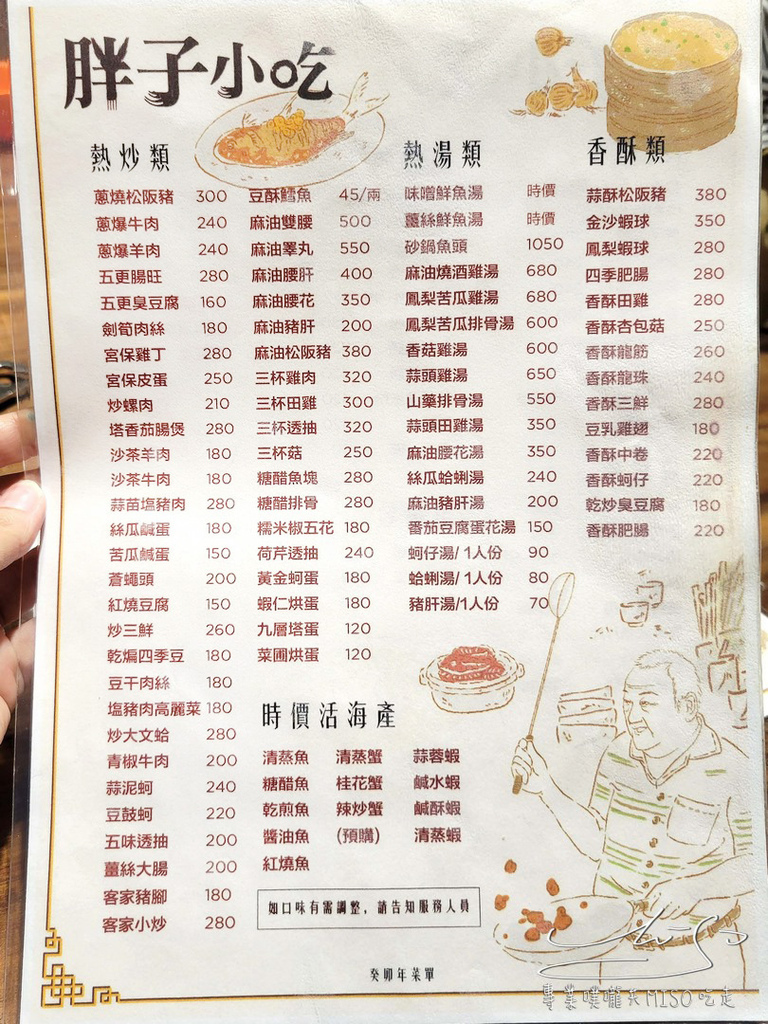 胖子小吃
熱炒類
蔥燒松阪豬 300
蔥爆牛肉 240
蔥爆羊肉 240
五更腸旺 280
五更臭豆腐 160
劍筍肉絲 180
宮保雞丁 280
宮保皮蛋 250
炒螺肉 210
塔香茄腸煲 280
沙茶羊肉 180
沙茶牛肉 180
蒜苗塩豬肉 280
絲瓜鹹蛋 180
苦瓜鹹蛋 150
蒼蠅頭 200
紅燒豆腐 150
炒三鮮 260
乾煸四季豆 180
豆干肉絲 180
塩豬肉高麗菜 180
炒大文蛤 280
青椒牛肉 200
蒜泥蚵 240
豆鼓蚵 220
五味透抽 200
薑絲大腸 200
客家豬腳 180
客家小炒 280
豆酥鱈魚 45/兩
麻油雙腰 500
麻油睪丸 550
麻油腰肝 400
麻油腰花 350
麻油豬肝 200
麻油松阪豬 380
三杯雞肉 320
三杯田雞 300
三杯透抽 320
三杯菇 250
糖醋魚塊 280
糖醋排骨 280
糯米椒五花 180
荷芹透抽 240
黃金蚵蛋 180
蝦仁烘蛋 180
九層塔蛋 120
菜圃烘蛋 120
熱湯類
味噌鮮魚湯 時價
薑絲鮮魚湯 時價
砂鍋魚頭 1050
麻油燒酒雞湯 680
鳳梨苦瓜雞湯 680
鳳梨苦瓜排骨湯 600
香菇雞湯 600
蒜頭雞湯 650
山藥排骨湯 550
蒜頭田雞湯 350
麻油腰花湯 350
絲瓜蛤蜊湯 240
麻油豬肝湯 200
番茄豆腐蛋花湯 150
蚵仔湯/ 1人份 90
蛤蜊湯/ 1人份 80
豬肝湯/1人份 70
香酥類
蒜酥松阪豬 380
金沙蝦球 350
鳳梨蝦球 280
四季肥腸 280
香酥田雞 280
香酥杏包菇 250
香酥龍筋 260
香酥龍珠 240
香酥三鮮 280
豆乳雞翅 180
香酥中卷 220
香酥蚵仔 220
乾炒臭豆腐 180
香酥肥腸 220
時價活海產
清蒸魚 清蒸蟹 蒜蓉蝦
糖醋魚 桂花蟹 鹹水蝦
乾煎魚 辣炒蟹 鹹酥蝦
醬油魚 (預購) 清蒸蝦
紅燒魚
如口味有需調整，請告知服務人員
癸卯年菜單
專業噗嚨共MISO吃走